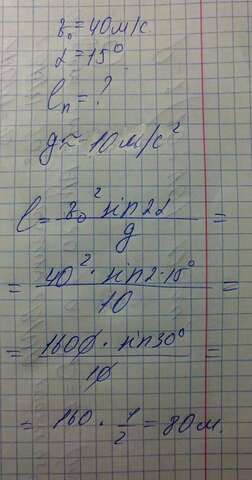 v₀ = 40 м/с
α = 15°
lₙ = ?
g ≈ 10 м/с²
l = v₀² sin2α / g =
= 40² · sin2·15° / 10 =
= 1600 · sin30° / 10 =
= 160 · 1/2 = 80 м.